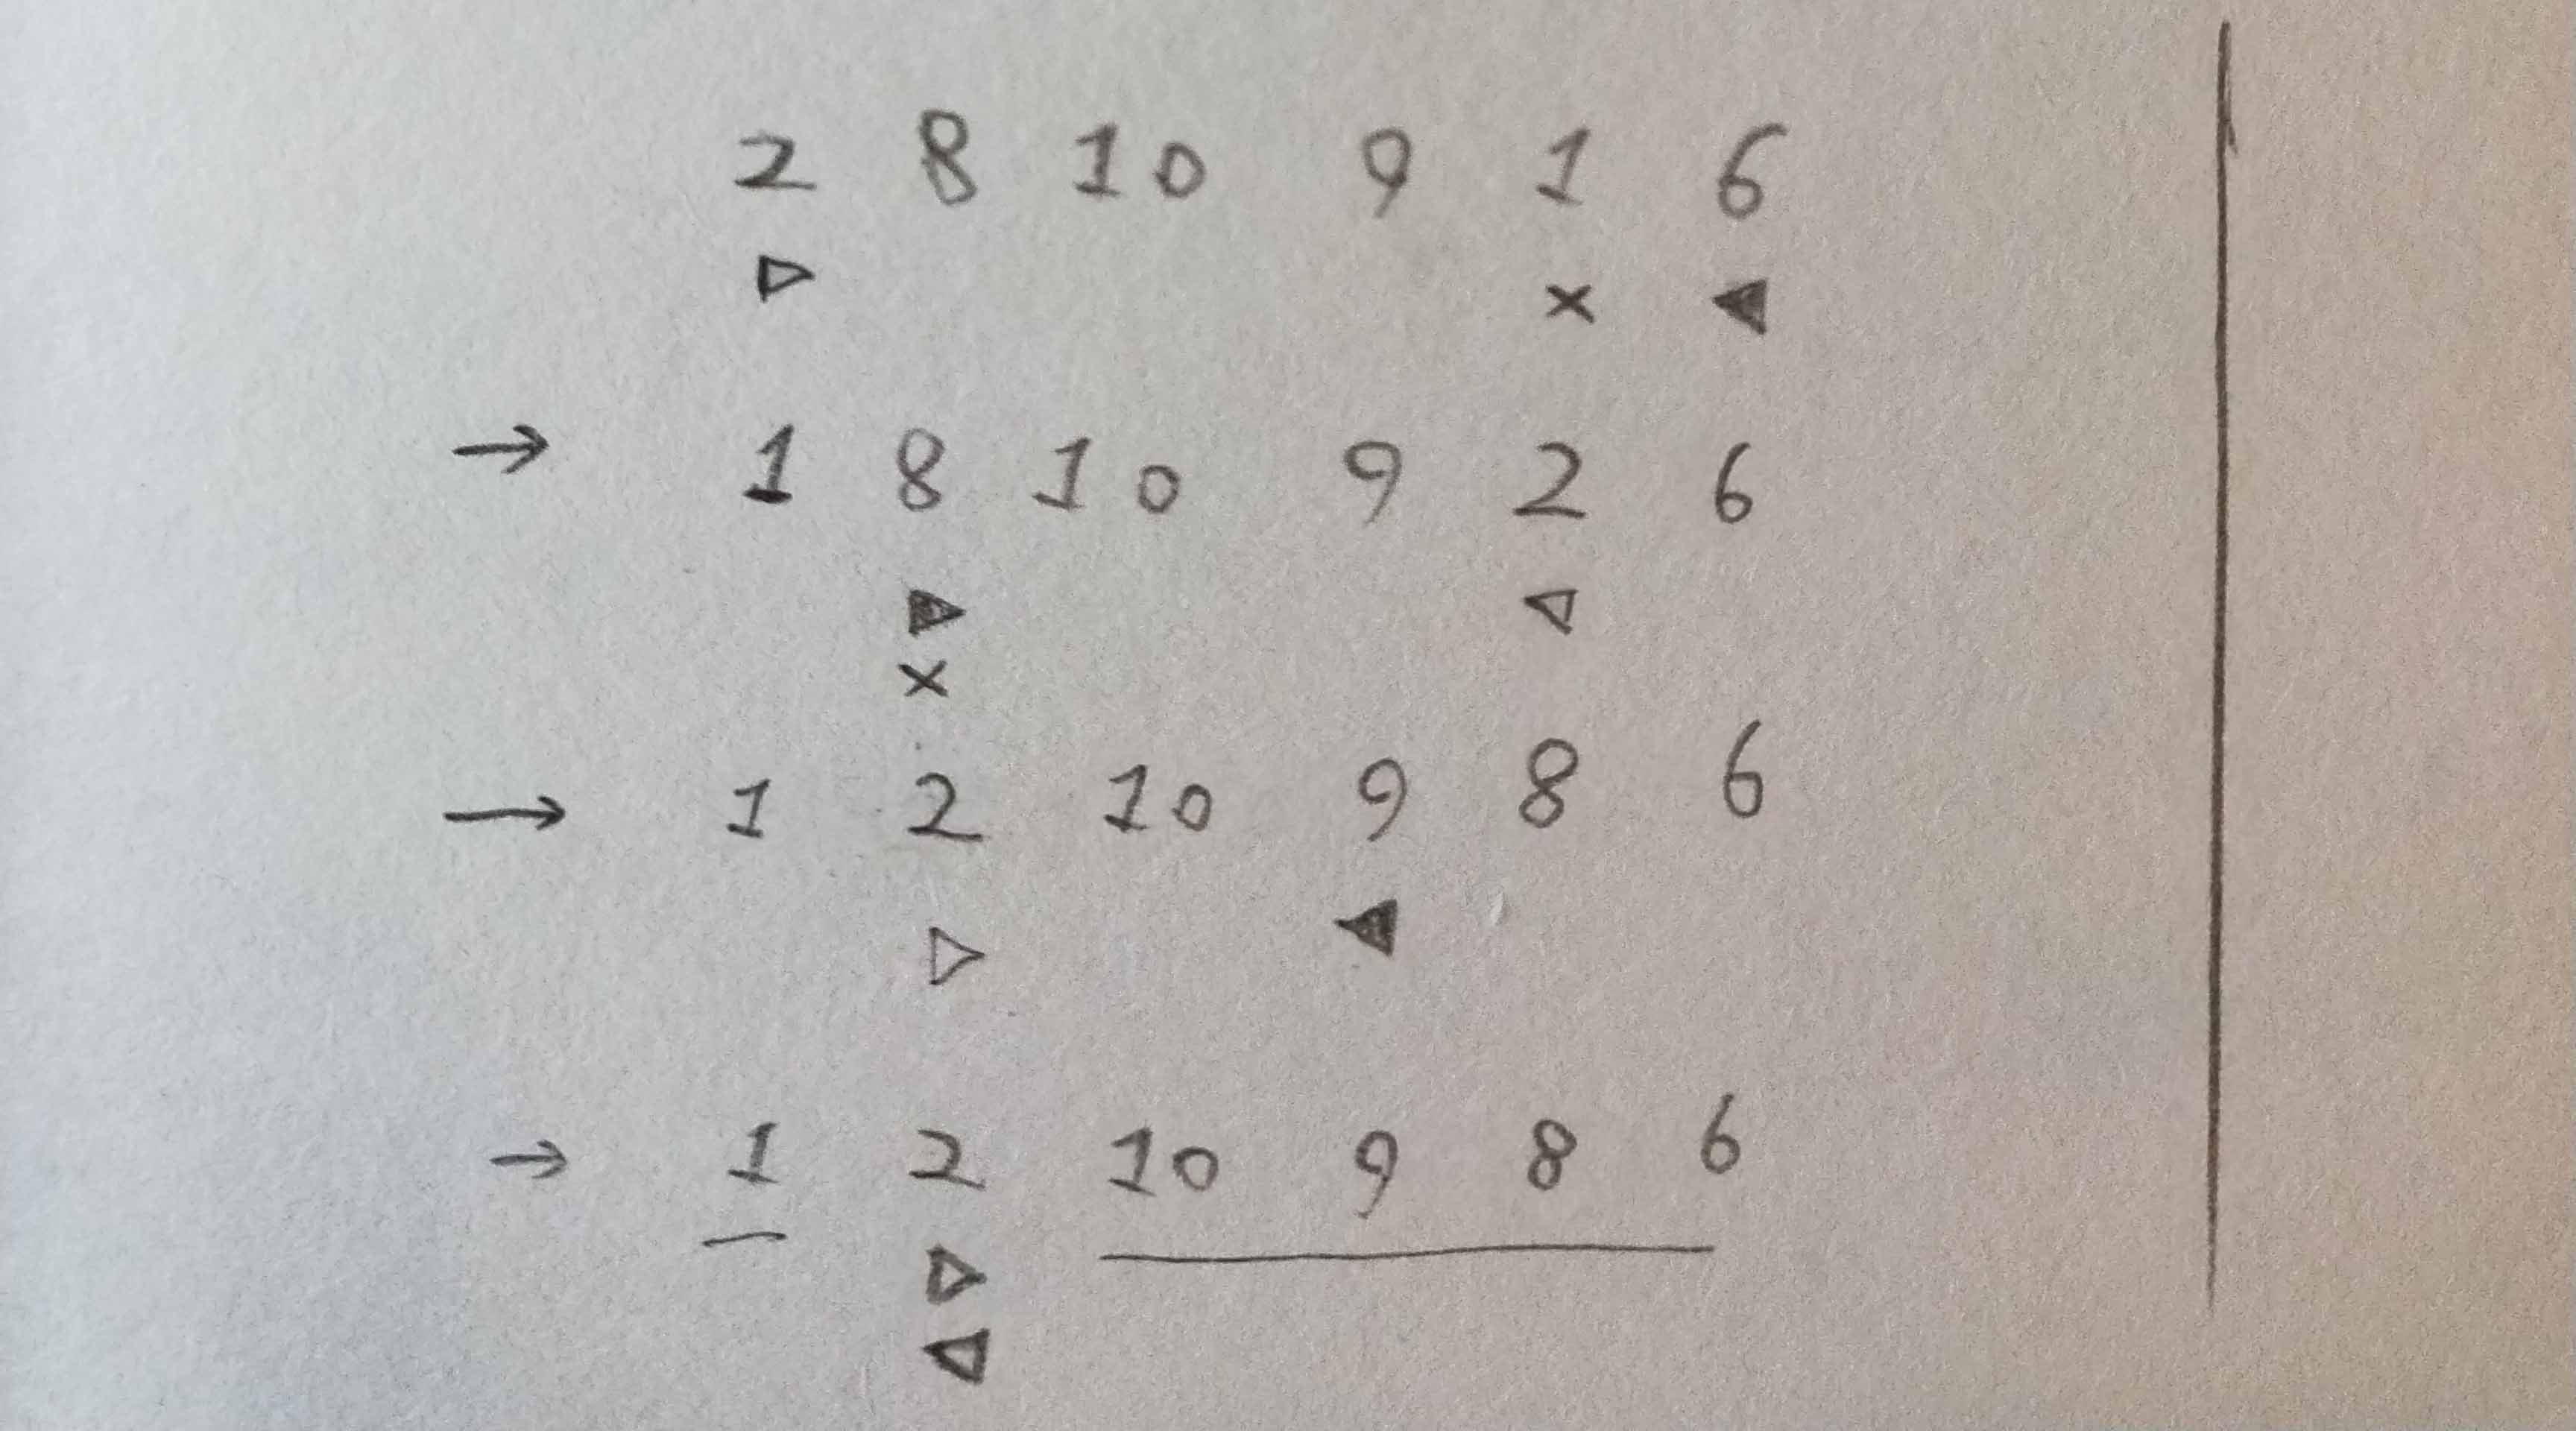 2 8 10 9 1 6
▷ × ◀
→ 1 8 10 9 2 6
▶ ◁
×
→ 1 2 10 9 8 6
▷ ◀
→ 1 2 10 9 8 6
▷
◁